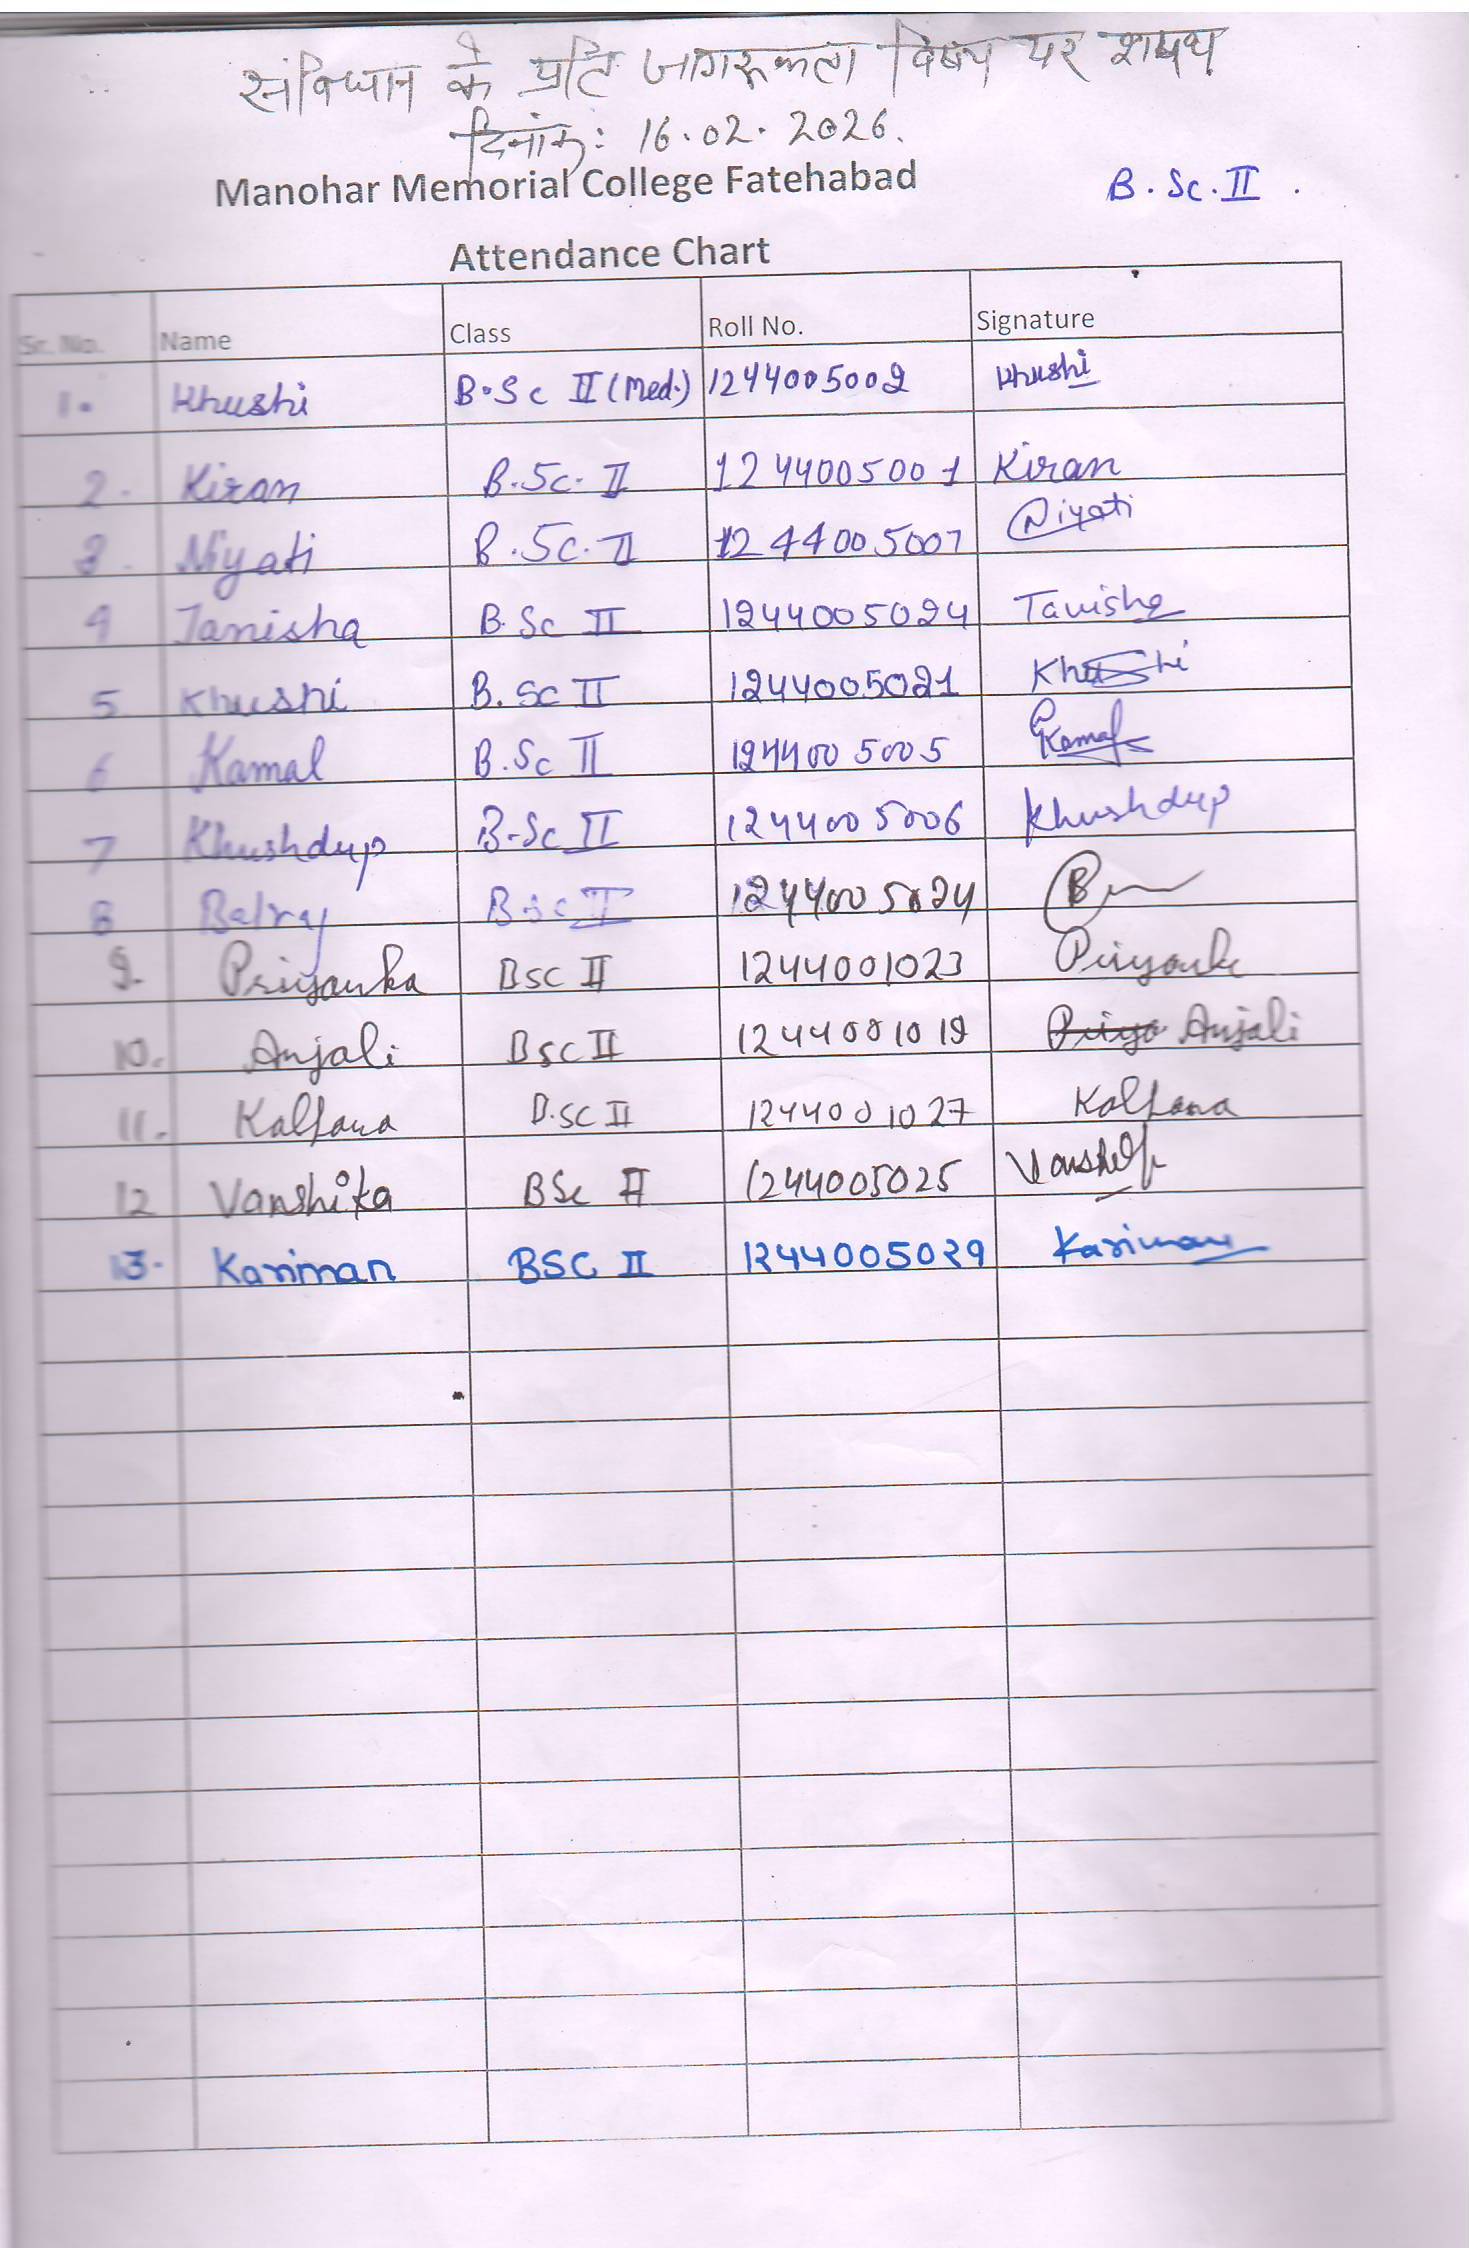 संविधान के प्रति जागरूकता विषय पर शपथ
दिनांक: 16.02.2026.
Manohar Memorial College Fatehabad B.Sc.II.
Attendance Chart
Sr. No. Name Class Roll No. Signature
1. Khushi B.Sc II (Med.) 1244005002 Khushi
2. Kiran B.Sc. II 1244005001 Kiran
3. Niyati B.Sc. II 1244005007 Niyati
4 Tanisha B.Sc II 1244005024 Tanisha
5 Khushi B.Sc II 1244005021 Khushi
6 Kamal B.Sc II 1244005005 Kamal
7 Khushdup B.Sc II 1244005006 Khushdup
8 Balraj B.Sc II 1244005024
9. Priyanka BSC II 1244001023 Priyanka
10. Anjali BSC II 1244001019 Anjali
11. Kalpana B.SC II 1244001027 Kalpana
12 Vanshika BSc II 1244005025 Vanshika
13. Kariman BSC II 1244005029 Kariman